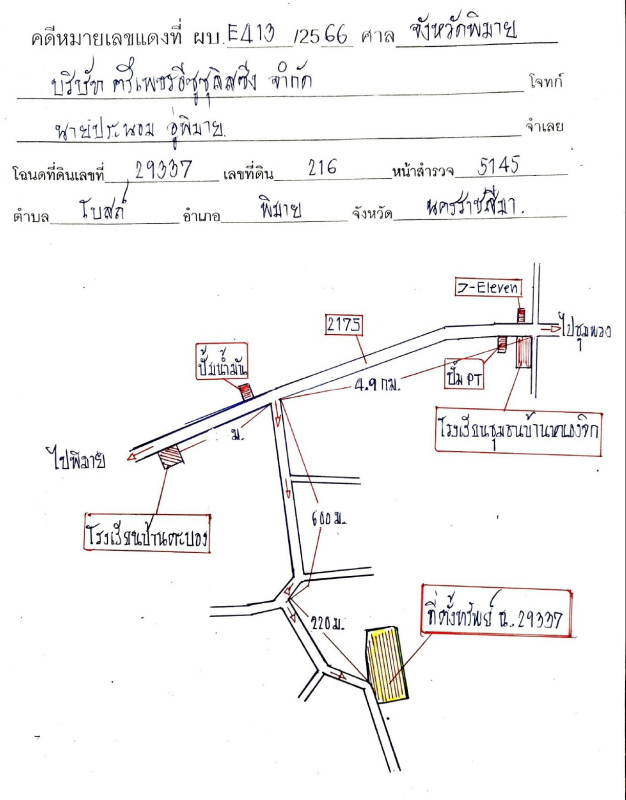 คดีหมายเลขแดงที่ ผบ.E413 /2566 ศาล จังหวัดพิมาย
บริษัท ตรีเพชรอีซูซุลิสซิ่ง จำกัด โจทก์
นายประนอม อู่พิมาย. จำเลย
โฉนดที่ดินเลขที่ 29337 เลขที่ดิน 216 หน้าสำรวจ 5145
ตำบล โบสถ์ อำเภอ พิมาย จังหวัด นครราชสีมา.
7-Eleven
2175
ไปชุมพวง
ปั๊มน้ำมัน
4.9 กม.
ปั๊ม PT
โรงเรียนชุมชนบ้านหนองจิก
ม.
ไปพิมาย
600 ม.
โรงเรียนบ้านตะบอง
220 ม.
ที่ตั้งทรัพย์ น.29337